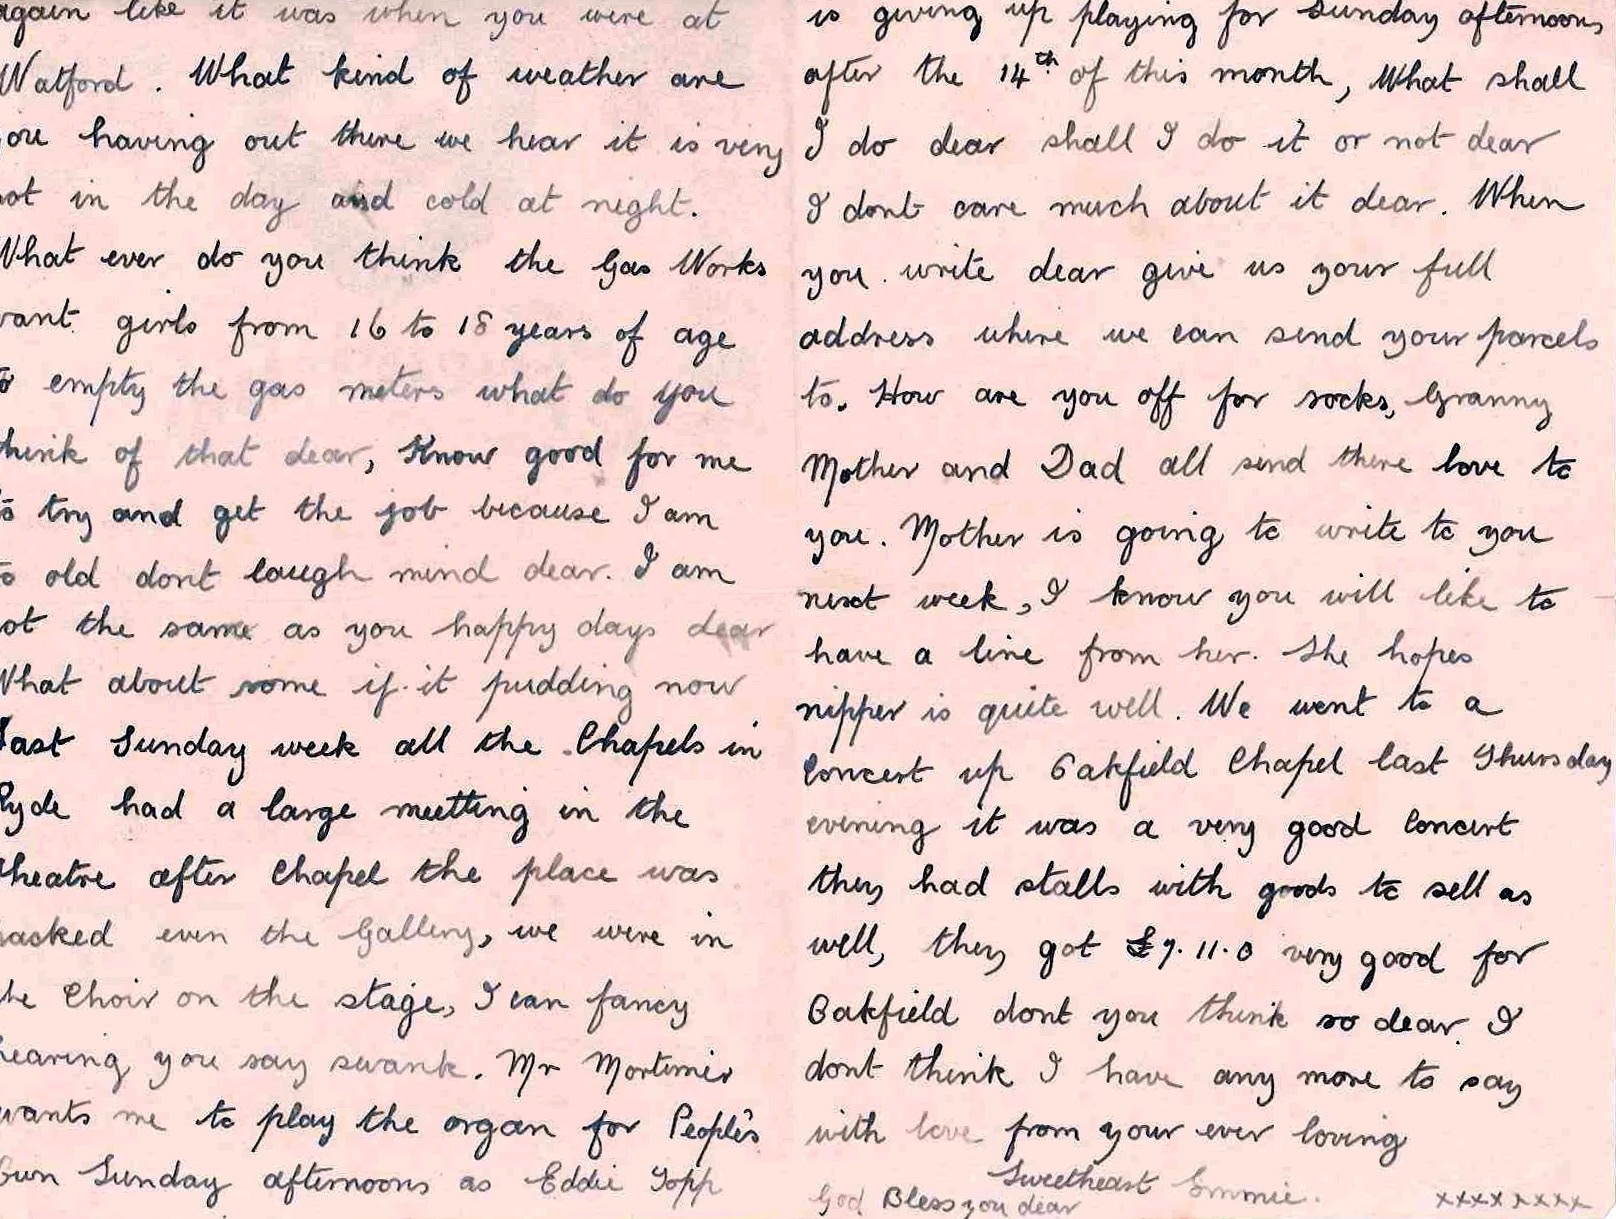 again like it was when you were at
Watford. What kind of weather are
you having out there we hear it is very
hot in the day and cold at night.
What ever do you think the Gas Works
want girls from 16 to 18 years of age
to empty the gas meters what do you
think of that dear, Know good for me
to try and get the job because I am
to old dont laugh mind dear. I am
not the same as you happy days dear
What about some if it pudding now
Last Sunday week all the Chapels in
Ryde had a large meetting in the
theatre after Chapel the place was
packed even the Gallery, we were in
the Choir on the stage, I can fancy
hearing you say swank. Mr Mortimer
wants me to play the organ for People's
Own Sunday afternoons as Eddie Topp
is giving up playing for Sunday afternoons
after the 14th of this month, What shall
I do dear shall I do it or not dear
I dont care much about it dear. When
you. write dear give us your full
address where we can send your parcels
to. How are you off for socks, Granny
Mother and Dad all send there love to
you. Mother is going to write to you
next week, I know you will like to
have a line from her. She hopes
nipper is quite well. We went to a
Concert up Oakfield Chapel last Thursday
evening it was a very good Concert
they had stalls with goods to sell as
well, they got £7.11.0 very good for
Oakfield dont you think so dear. I
dont think I have any more to say
with love from your ever loving
Sweetheart Emmie.
God Bless you dear xxxxxxxx